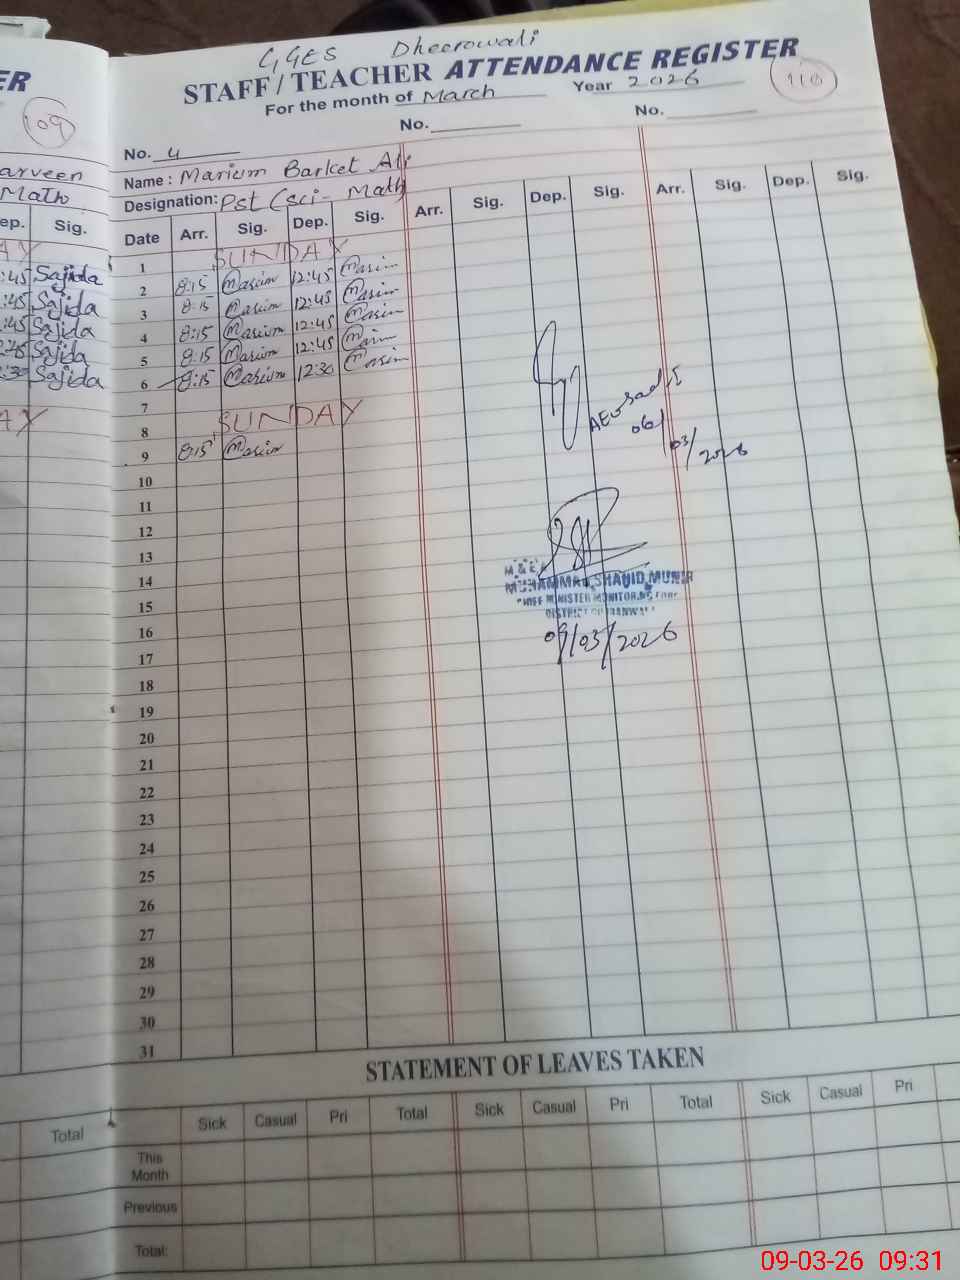 GGES Dheerowali
STAFF / TEACHER ATTENDANCE REGISTER
For the month of March Year 2026
110
No. 4 No. No.
Name : Marium Barket Ali
Designation: Pst (sci- Math)
Date Arr. Sig. Dep. Sig. Arr. Sig. Dep. Sig. Arr. Sig. Dep. Sig.
1 SUNDAY
2 8:15 Marium 12:45 Marium
3 8:15 Marium 12:45 Marium
4 8:15 Marium 12:45 Marium
5 8:15 Marium 12:45 Marium
6 8:15 Marium 12:30 Marium
7
8 SUNDAY
9 8:15 Marium
10
11
12
13
14
15
16
17
18
19
20
21
22
23
24
25
26
27
28
29
30
31
AEO
06/03/2026
M & E A
MUHAMMAD SHAHID MUNIR
CHIEF MINISTER MONITORING FORCE
09/03/2026
STATEMENT OF LEAVES TAKEN
Sick Casual Pri Total Sick Casual Pri Total Sick Casual Pri
This Month
Previous
Total:
ER
109
arveen
Math
ep. Sig.
AY
:45 Sajida
:45 Sajida
:45 Sajida
:45 Sajida
:30 Sajida
AY
Total
09-03-26 09:31